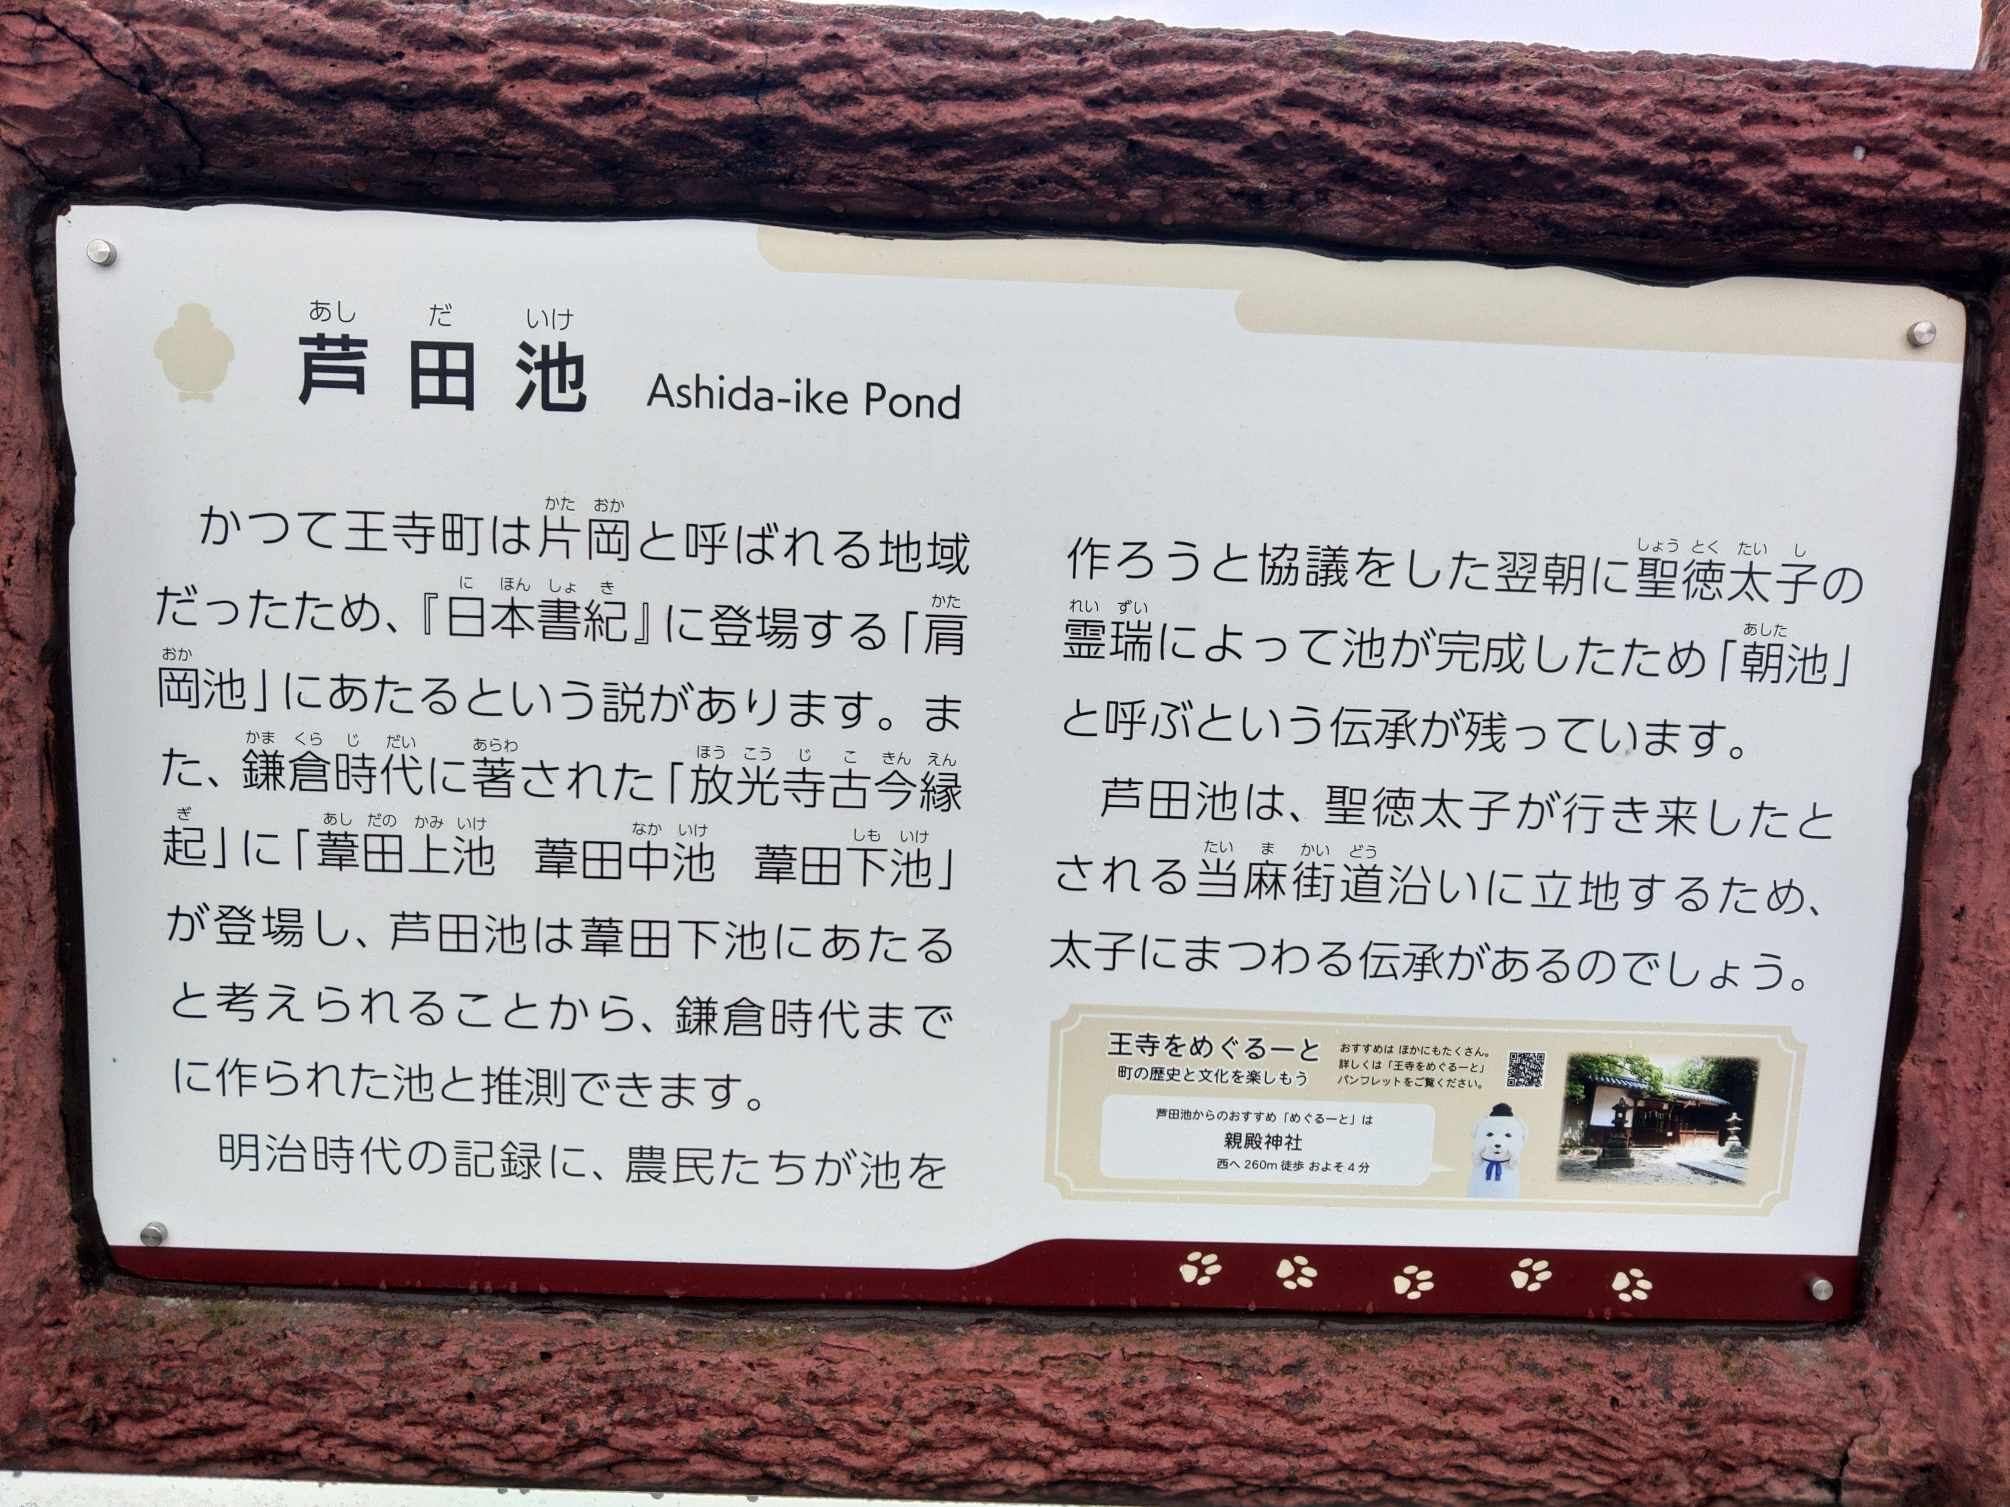 芦田池 Ashida-ike Pond
あし だ いけ
かつて王寺町は片岡と呼ばれる地域
かた おか
だったため、『日本書紀』に登場する「肩
に ほん しょ き かた
岡池」にあたるという説があります。ま
おか
た、鎌倉時代に著された「放光寺古今縁
かま くら じ だい あらわ ほう こう じ こ きん えん
起」に「葦田上池　葦田中池　葦田下池」
ぎ あし だの かみ いけ なか いけ しも いけ
が登場し、芦田池は葦田下池にあたる
と考えられることから、鎌倉時代まで
に作られた池と推測できます。
明治時代の記録に、農民たちが池を
作ろうと協議をした翌朝に聖徳太子の
しょう とく たい し
霊瑞によって池が完成したため「朝池」
れい ずい あした
と呼ぶという伝承が残っています。
芦田池は、聖徳太子が行き来したと
される当麻街道沿いに立地するため、
たい ま かい どう
太子にまつわる伝承があるのでしょう。
王寺をめぐるーと
町の歴史と文化を楽しもう
おすすめは ほかにもたくさん。
詳しくは「王寺をめぐるーと」
パンフレットをご覧ください。
芦田池からのおすすめ「めぐるーと」は
親殿神社
西へ 260m 徒歩 およそ 4 分